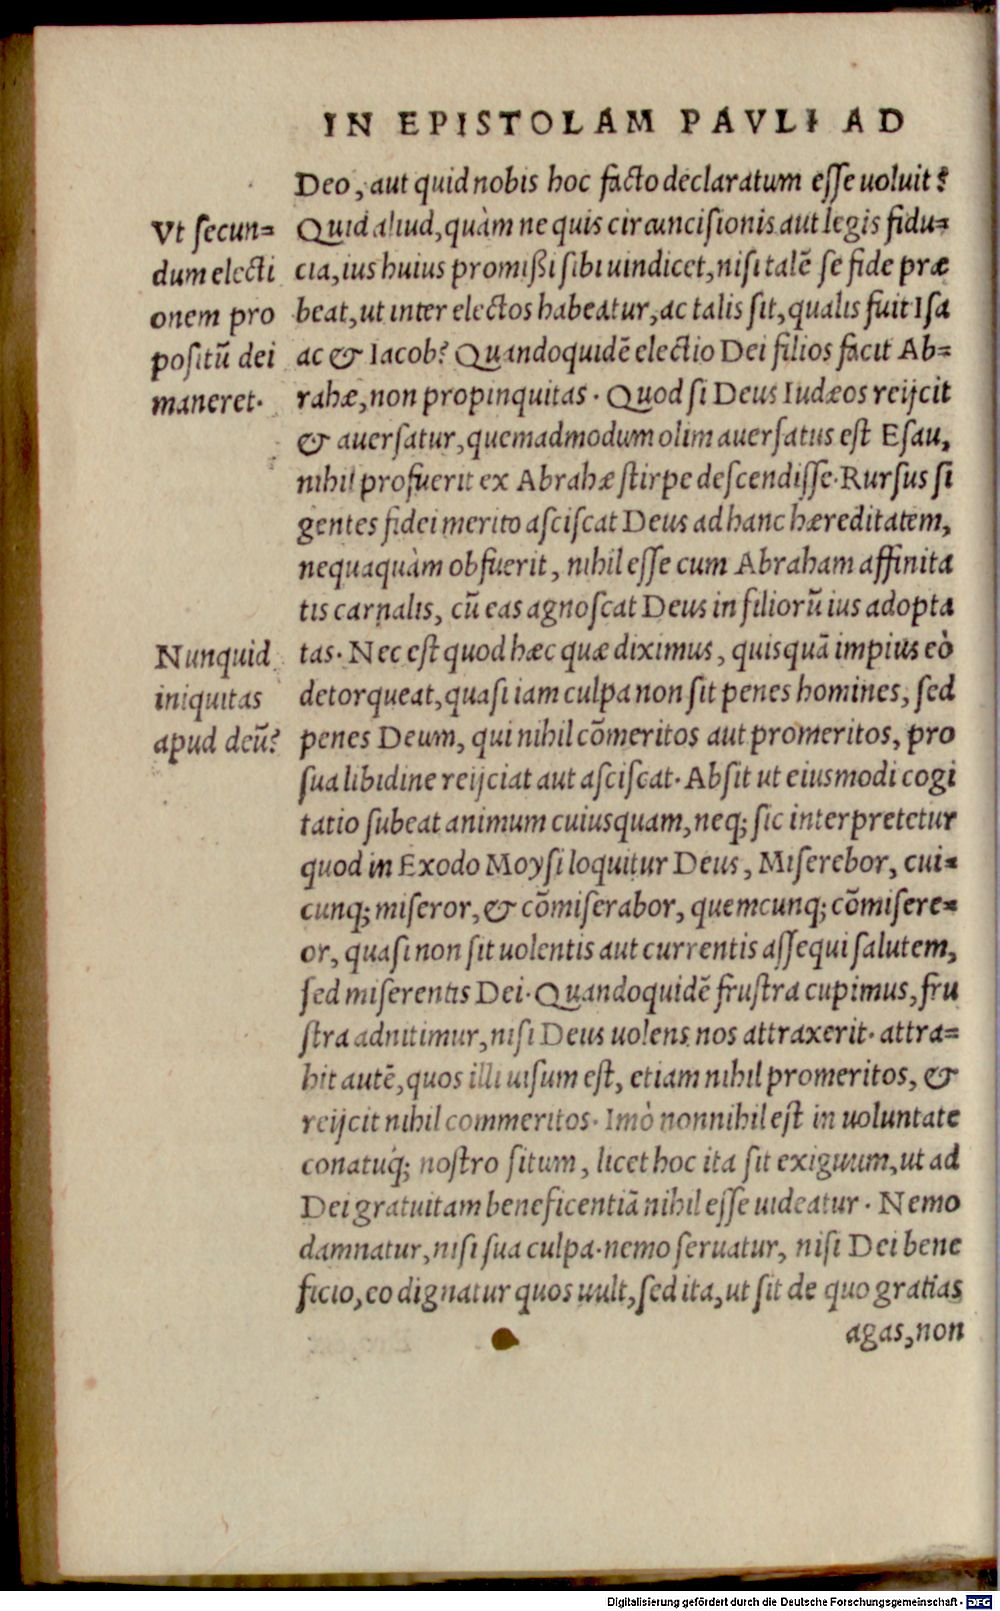 IN EPISTOLAM PAVLI AD
Deo, aut quid nobis hoc facto declaratum esse uoluit?
Quid aliud, quàm ne quis circuncisionis aut legis fidu=
cia, ius huius promißi sibi uindicet, nisi talẽ se fide præ
beat, ut inter electos habeatur, ac talis sit, qualis fuit Isa
ac & Iacob? Quandoquidẽ electio Dei filios facit Ab=
rahæ, non propinquitas. Quod si Deus Iudæos reijcit
& auersatur, quemadmodum olim auersatus est Esau,
nihil profuerit ex Abrahæ stirpe descendisse. Rursus si
gentes fidei merito asciscat Deus ad hanc hæreditatem,
nequaquàm obfuerit, nihil esse cum Abraham affinita
tis carnalis, cũ eas agnoscat Deus in filiorũ ius adopta
tas. Nec est quod hæc quæ diximus, quisquã impius eò
detorqueat, quasi iam culpa non sit penes homines, sed
penes Deum, qui nihil cõmeritos aut promeritos, pro
sua libidine reijciat aut asciscat. Absit ut eiusmodi cogi
tatio subeat animum cuiusquam, neq; sic interpretetur
quod in Exodo Moysi loquitur Deus, Miserebor, cui=
cunq; miseror, & cõmiserabor, quemcunq; cõmisere=
or, quasi non sit uolentis aut currentis assequi salutem,
sed miserentis Dei. Quandoquidẽ frustra cupimus, fru
stra adnitimur, nisi Deus uolens nos attraxerit. attra=
hit autẽ, quos illi uisum est, etiam nihil promeritos, &
reijcit nihil commeritos. Imò nonnihil est in uoluntate
conatuq́; nostro situm, licet hoc ita sit exiguum, ut ad
Dei gratuitam beneficentiã nihil esse uideatur. Nemo
damnatur, nisi sua culpa. nemo seruatur, nisi Dei bene
ficio, eo dignatur quos uult, sed ita, ut sit de quo gratias
agas, non
Vt secun=
dum electi
onem pro
positũ dei
maneret.
Nunquid
iniquitas
apud deũ?
Digitalisierung gefördert durch die Deutsche Forschungsgemeinschaft - DFG